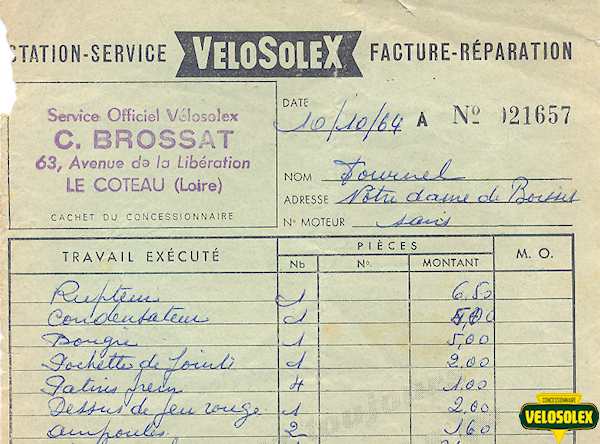 STATION-SERVICE VELOSOLEX FACTURE-RÉPARATION
Service Officiel Vélosolex
C. BROSSAT
63, Avenue de la Libération
LE COTEAU (Loire)
CACHET DU CONCESSIONNAIRE
DATE 10/10/64 A Nº 021657
NOM Tournel
ADRESSE Notre dame de Boisset
Nº MOTEUR sans
TRAVAIL EXÉCUTÉ PIÈCES M. O.
Nb Nº. MONTANT
Rupteur 1 6,50
Condensateur 1
Bougie 1 5,00
Pochette de Joints 1 2,00
Patins frein 4 1,00
Dessus de feu rouge 1 2,00
ampoules 2 1,60
CONCESSIONNAIRE
VELOSOLEX